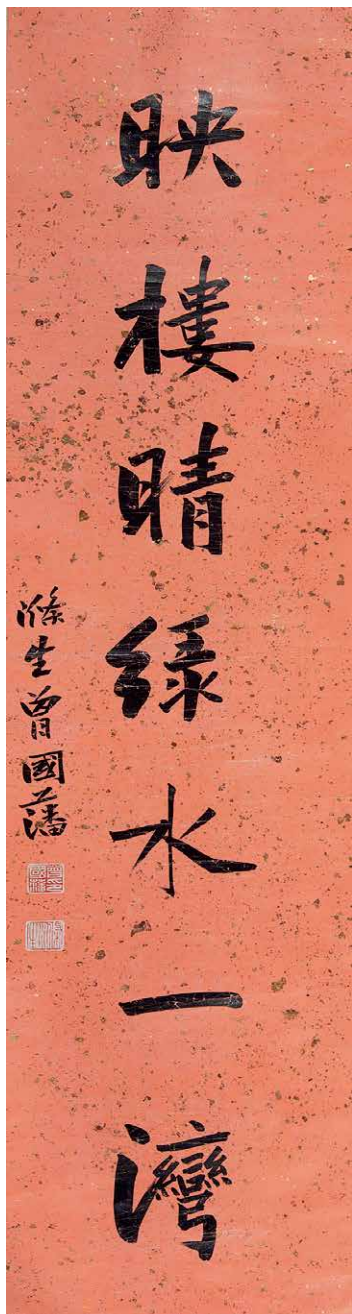 映樓晴緑水一灣
滌生曾國藩